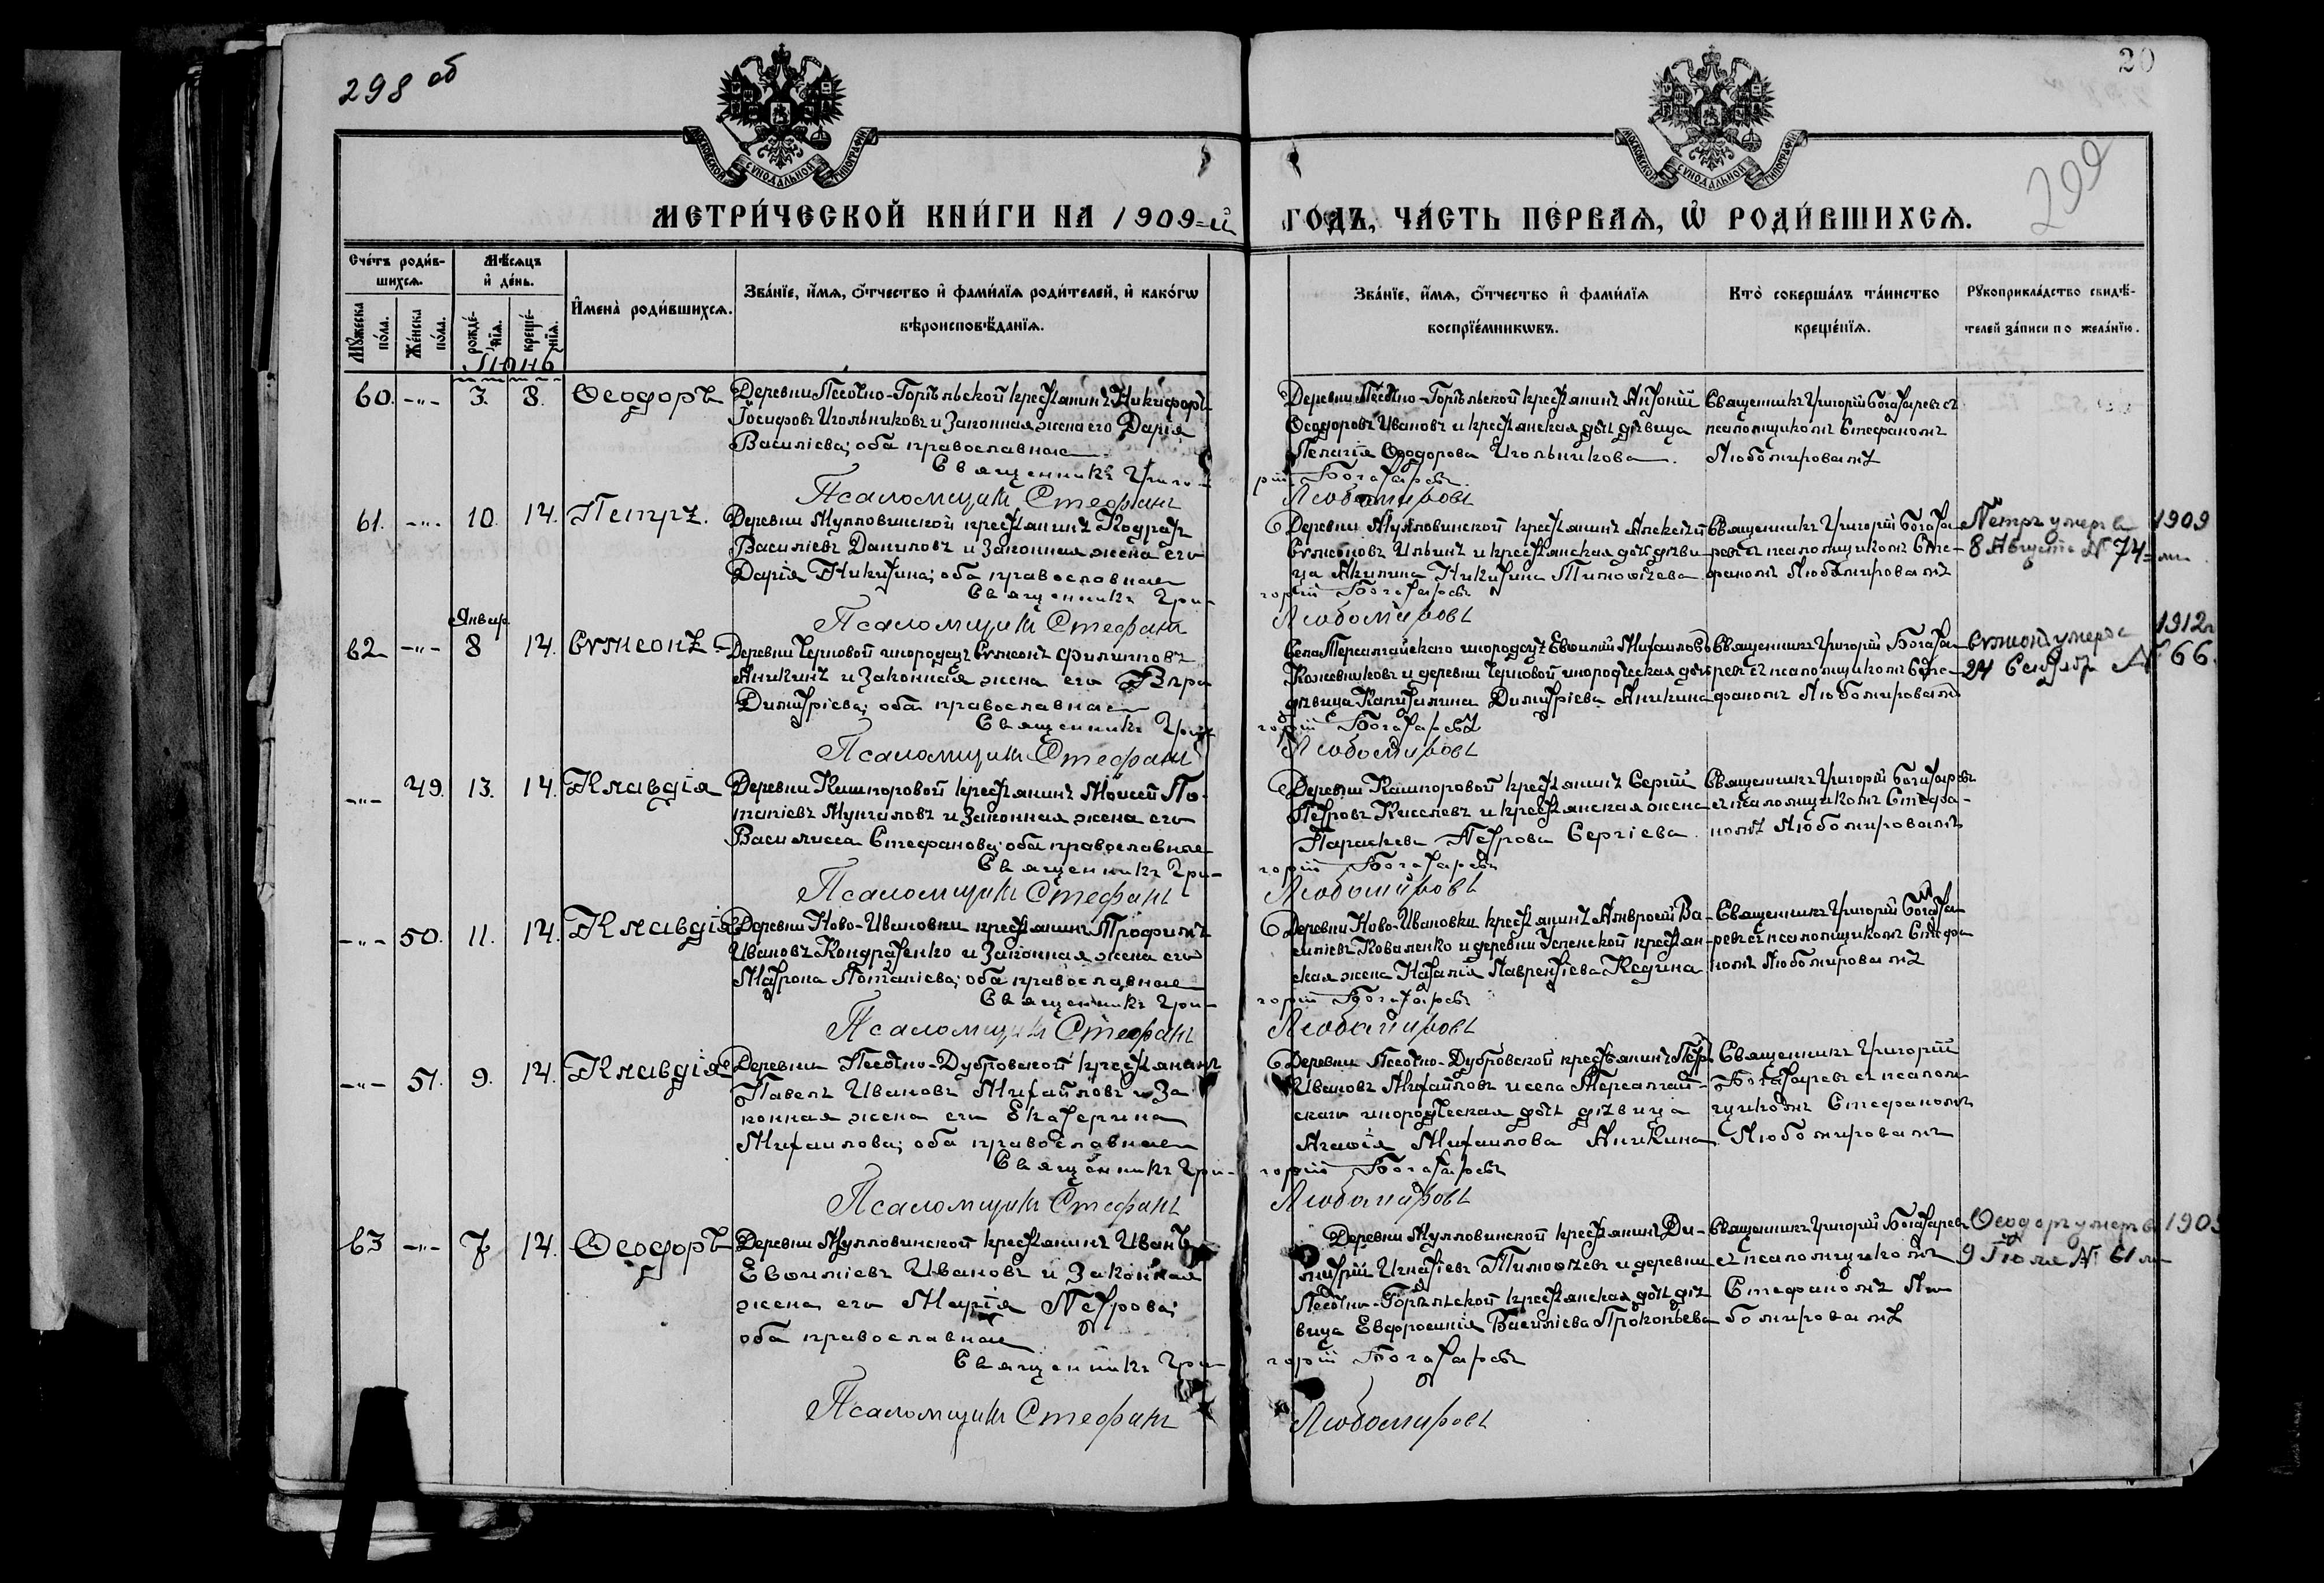 298 об
20
299
МОСКОВСКОЙ СѴНОДАЛЬНОЙ ТИПОГРАФІИ
МОСКОВСКОЙ СѴНОДАЛЬНОЙ ТИПОГРАФІИ
МЕТРИ́ЧЕСКОЙ КНИ́ГИ НА 1909=й
ГО́ДЪ, ЧА́СТЬ ПЕ́РВАЯ, Ѽ РОДИ́ВШИХСЯ.
Сче́тъ роди́в-
шихся.
Мꙋ́жеска по́ла.
Же́нска по́ла.
Мѣ́сяцъ
и҆ де́нь.
рожде́-нїя.
креще́-нїя.
И҆мена̀ роди́вшихся.
Зва́нїе, и҆́мя, ѻ҆́тчество и҆ фами́лїя роди́телей, и҆ како́гѡ
вѣроисповѣ́данїя.
Зва́нїе, и҆́мя, ѻ҆́тчество и҆ фами́лїя
воспрїе́мникѡвъ.
Кто̀ соверша́лъ та́инство
креще́нїя.
Рꙋкоприкла́дство свидѣ́-
телей за́писи по жела́нїю.
Іюнь
60. -"- 3. 8. Ѳеодоръ
Деревни Песочно-Горѣльской крестьянинъ Никифоръ
Іосифовъ Игольниковъ и законная жена его Дарія
Василіева; оба православные
Священникъ Григо-
Псаломщикъ Стефанъ
Деревни Песочно-Горѣльской крестьянинъ Антоній
Ѳеодоровъ Ивановъ и крестьянская дочь дѣвица
Пелагія Ѳеодорова Игольникова.
рій Богатыревъ.
Любомировъ
Священникъ Григорій Богатыревъ съ
псаломщикомъ Стефаномъ
Любомировымъ
61. -"- 10. 14. Петръ.
Деревни Мулловинской крестьянинъ Кодратъ
Василіевъ Даниловъ и законная жена его
Дарія Никитина; оба православные
Священникъ Гри-
Псаломщикъ Стефанъ
Деревни Мулловинской крестьянинъ Алексій
Сѵмеоновъ Ильинъ и крестьянская дочь дѣви-
ца Акилина Никитина Тимоѳеева.
горій Богатыревъ
Любомировъ
Священникъ Григорій Богаты-
ревъ съ псаломщикомъ Сте-
фаномъ Любомировымъ
Петръ умеръ 1909
8 Августа № 74=
Январ
62 -"- 8 14. Сѵмеонъ
Деревни Черновой инородецъ Сѵмеонъ Филипповъ
Аникинъ и законная жена его
Димитріева; оба православные
Священникъ Григ
Псаломщикъ Стефанъ
Села Терсалгайскаго инородецъ Евѳимій Михаиловъ
Кожевниковъ и деревни Черновой инородческая дочь
дѣвица Капитолина Димитріева Аникина
горій Богатыревъ
Любомировъ
Священникъ Григорій Богаты-
ревъ съ псаломщикомъ Сте-
фаномъ Любомировымъ
Сѵмеонъ умеръ 1912г
24 Сентября № 66.
-"- 49. 13. 14. Клавдія
Деревни Кашпоровой крестьянинъ Моисей По-
тапіевъ Мунгаловъ и законная жена его
Василисса Стефанова; оба православные
Священникъ Гри-
Псаломщикъ Стефанъ
Деревни Кашпоровой крестьянинъ Сергій
Петровъ Киселевъ и крестьянская жена
Параскева Петрова Сергіева.
горій Богатыревъ
Любомировъ
Священникъ Григорій Богатыревъ
съ псаломщикомъ Стефа-
номъ Любомировымъ
-"- 50. 11. 14. Клавдія
Деревни Ново-Ивановки крестьянинъ Трофимъ
Ивановъ Кондратенко и законная жена его
Матрона Потапіева; оба православные
Священникъ Гри-
Псаломщикъ Стефанъ
Деревни Ново-Ивановки крестьянинъ Амвросій Ва-
силіевъ Коваленко и деревни Успенской крестьян-
ская жена Наталія Лаврентіева Кедрина
горій Богатыревъ
Любомировъ
Священникъ Григорій Богаты-
ревъ съ псаломщикомъ Стефа
номъ Любомировымъ
-"- 51. 9. 14. Клавдія
Деревни Песочно-Дубровской крестьянинъ
Павелъ Ивановъ Михайловъ и за
конная жена его Екатерина
Михаилова; оба православные
Священникъ Гри-
Псаломщикъ Стефанъ
Деревни Песочно-Дубровской крестьянинъ Петръ
Ивановъ Михайловъ и села Терсалгай-
скаго инородческая дочь дѣвица
Агаѳія Михаилова Аникина.
горій Богатыревъ
Любомировъ
Священникъ Григорій
Богатыревъ съ псалом
щикомъ Стефаномъ
Любомировымъ
63 -"- 7 14. Ѳеодоръ
Деревни Мулловинской крестьянинъ Иванъ
Евѳиміевъ Ивановъ и законная
жена его Марія Петрова;
оба православные
Священникъ Гри
Псаломщикъ Стефанъ
Деревни Мулловинской крестьянинъ Ди-
митрій Игнатіевъ Тимоѳеевъ и деревни
Песочно-Горѣльской крестьянская дочь дѣ
вица Евфросинія Василіева Прокопьева
горій Богатыревъ
Любомировъ
Священникъ Григорій Богатыревъ
съ псаломщикомъ
Стефаномъ Лю
бомировымъ
Ѳеодоръ умеръ 1909
9 Іюля № 61